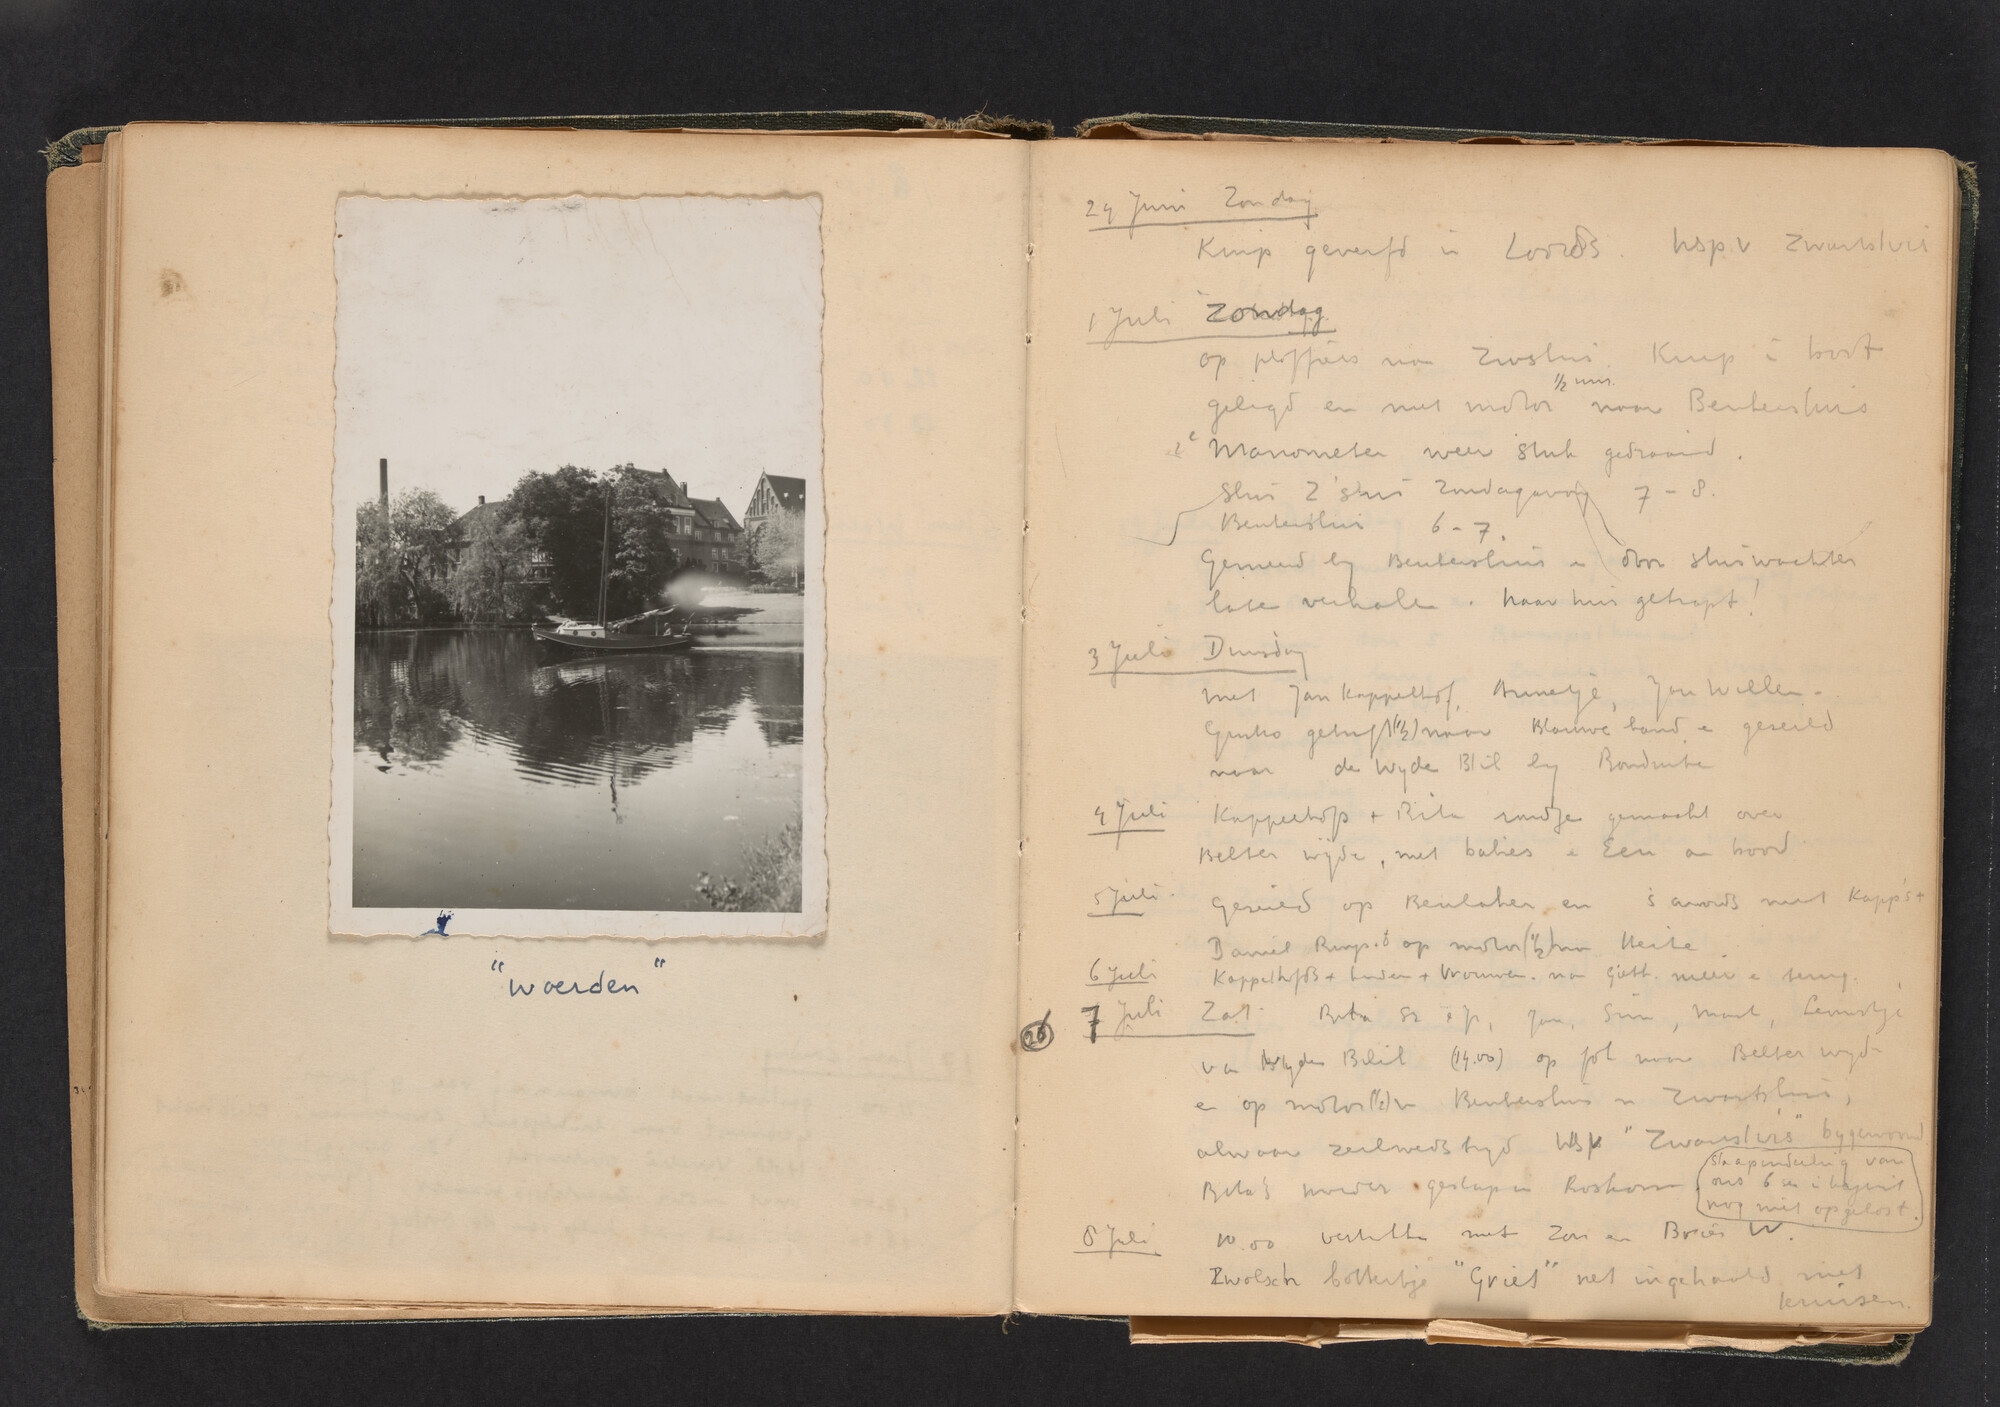 "Woerden"
24 Juni Zondag
Kuip geverfd in Loods. hsp. v Zwartsluis
1 Juli Zondag
op van Zwsluis. Kuip i boot
gelegd en met motor 1/2 uur naar Beukersluis
Manometer weer stuk gedraaid.
Sluis Z'sluis Zondagavond 7 - 8.
Beukersluis 6 - 7.
Gemeerd bij Beukersluis e door sluiswachter
late verhale. Naar huis getrapt!
3 Juli Dinsdag
met Jan Kappelhof, Annetje, Jan Willem -
(1/2) naar Blauwe hand e gezeild
naar de Wijde Blik bij Ronduite
4 Juli Kappelhofs + Rita rondje gemaakt over
Belter wijde, met babies e Een a boord
5 Juli Gezeild op Beulaker en 's avonds met Kapp's +
Daniel op motor (1/2)
6 Juli Kappelhofs + kinden + Vrouwen. van Gieth. meer e terug.
26 7 Juli Zat. Rita Sr Jan,
va Wijde Blik (14.00) op fok naar Belter wijd
e op motor (1/2) v Beukersluis n Zwartsluis,
alwaar zeilwedstrijd WSV "Zwartsluis" bijgewoond
moeder geslapen Roskam
slaapindeeling van
ons 6 in kajuit
nog niet opgelost.
8 Juli 10.00 met Zon en Bries W.
Zwolsch bottertje "Griet" net ingehaald met
kruisen.